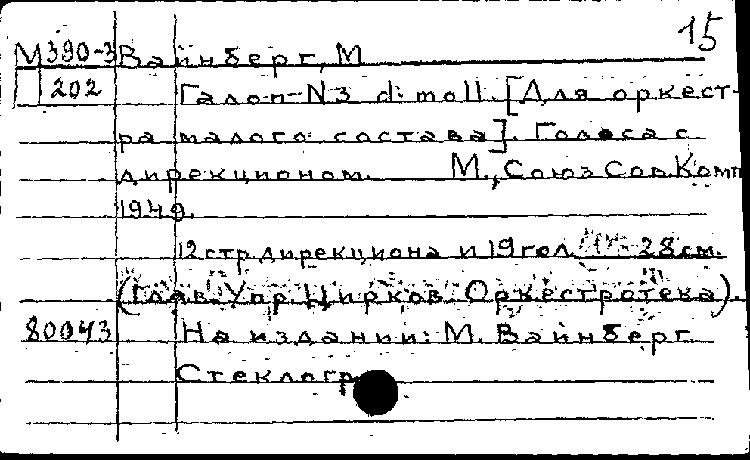 15
М390-3 Вайнберг, М
202 Галоп-N3 d-moll. [Для оркест-
ра малого состава]. Голоса с
дирекционом. М., Союз Сов.Комп
1949.
12 стр. дирекциона и 19 гол. 28 см.
(Глав. Упр. Цирков. Оркестротека).
80043 На издании: М. Вайнберг
Стеклогр.